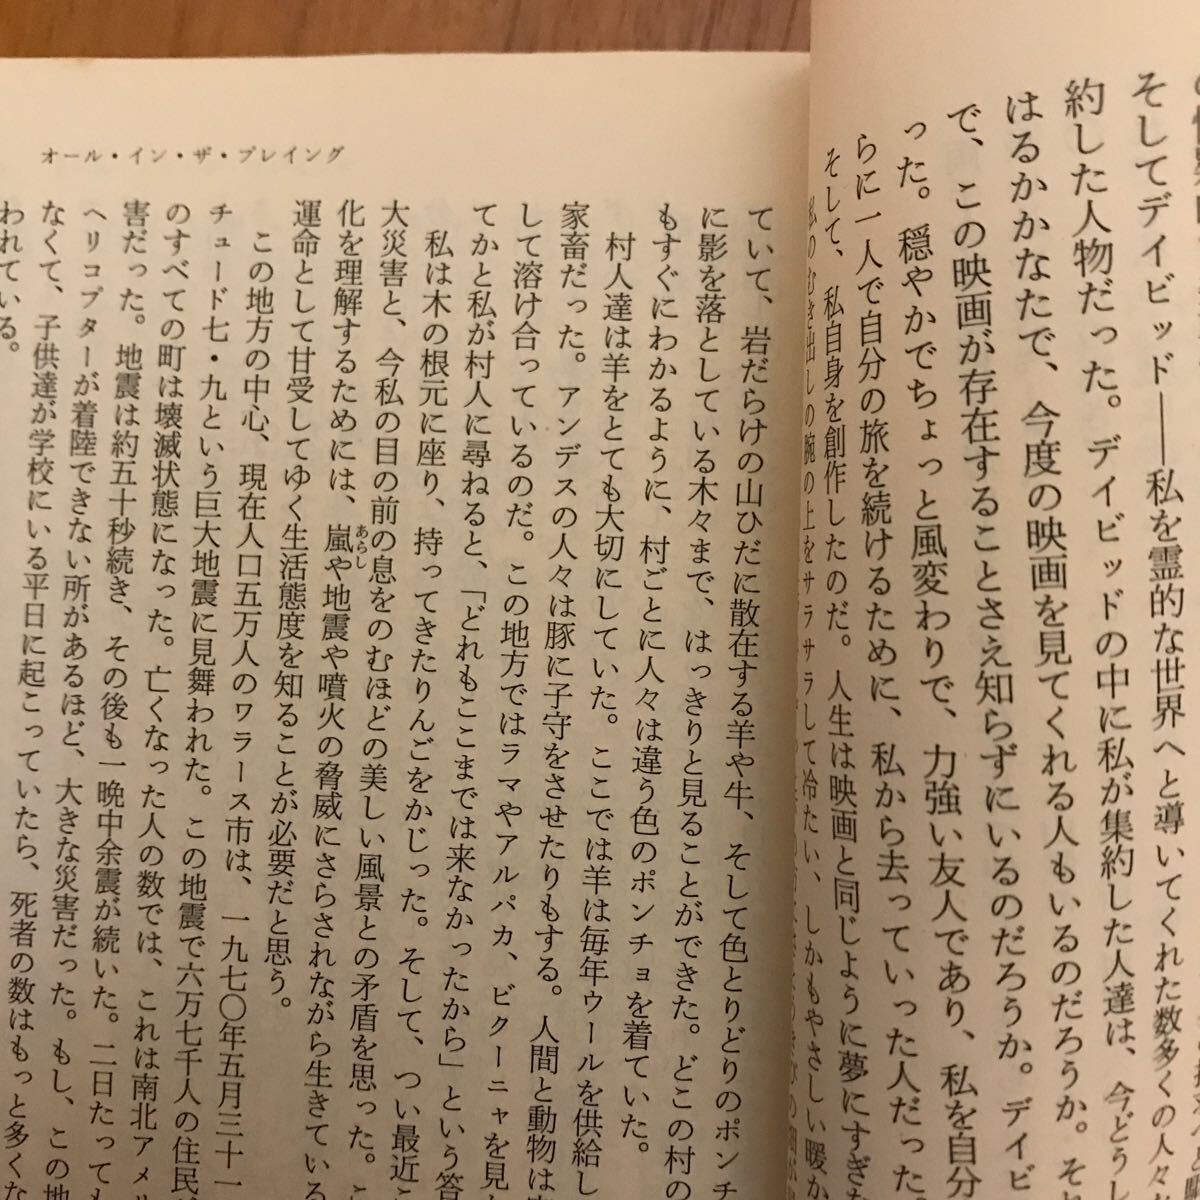 そしてデイビッド――私を霊的な世界へと導いてくれた数多くの人々
約した人物だった。デイビッドの中に私が集約した人達は、今どうし
はるかかなたで、今度の映画を見てくれる人もいるのだろうか。そ
で、この映画が存在することさえ知らずにいるのだろうか。デイビ
った。穏やかでちょっと風変わりで、力強い友人であり、私を自分
らに一人で自分の旅を続けるために、私から去っていった人だった
そして、私自身を創作したのだ。人生は映画と同じように夢にすぎな
私のむき出しの腕の上をサラサラして冷たい、しかもやさしい暖か
オール・イン・ザ・プレイング
ていて、岩だらけの山ひだに散在する羊や牛、そして色とりどりのポンチ
に影を落としている木々まで、はっきりと見ることができた。どこの村の
もすぐにわかるように、村ごとに人々は違う色のポンチョを着ていた。
村人達は羊をとても大切にしていた。ここでは羊は毎年ウールを供給し
家畜だった。アンデスの人々は豚に子守をさせたりもする。人間と動物は
して溶け合っているのだ。この地方ではラマやアルパカ、ビクーニャを見
てかと私が村人に尋ねると、「どれもここまでは来なかったから」という答
私は木の根元に座り、持ってきたりんごをかじった。そして、つい最近
大災害と、今私の目の前の息をのむほどの美しい風景との矛盾を思った。
化を理解するためには、嵐や地震や噴火の脅威にさらされながら生きている
あらし
運命として甘受してゆく生活態度を知ることが必要だと思う。
この地方の中心、現在人口五万人のワラース市は、一九七〇年五月三十一
チュード七・九という巨大地震に見舞われた。この地震で六万七千人の住民
のすべての町は壊滅状態になった。亡くなった人の数では、これは南北アメ
害だった。地震は約五十秒続き、その後も一晩中余震が続いた。二日たっても
ヘリコプターが着陸できない所があるほど、大きな災害だった。もし、この地
なくて、子供達が学校にいる平日に起こっていたら、死者の数はもっと多くな
われている。